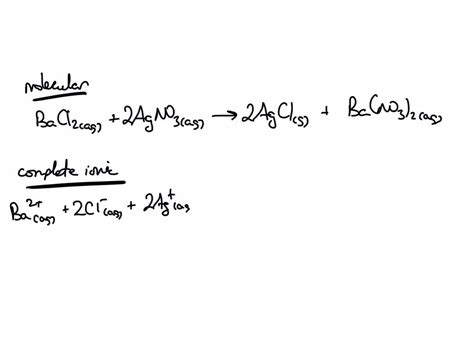 molecular
BaCl₂(aq) + 2AgNO₃(aq) → 2AgCl(s) + Ba(NO₃)₂(aq)
complete ionic
Ba²⁺(aq) + 2Cl⁻(aq) + 2Ag⁺(aq